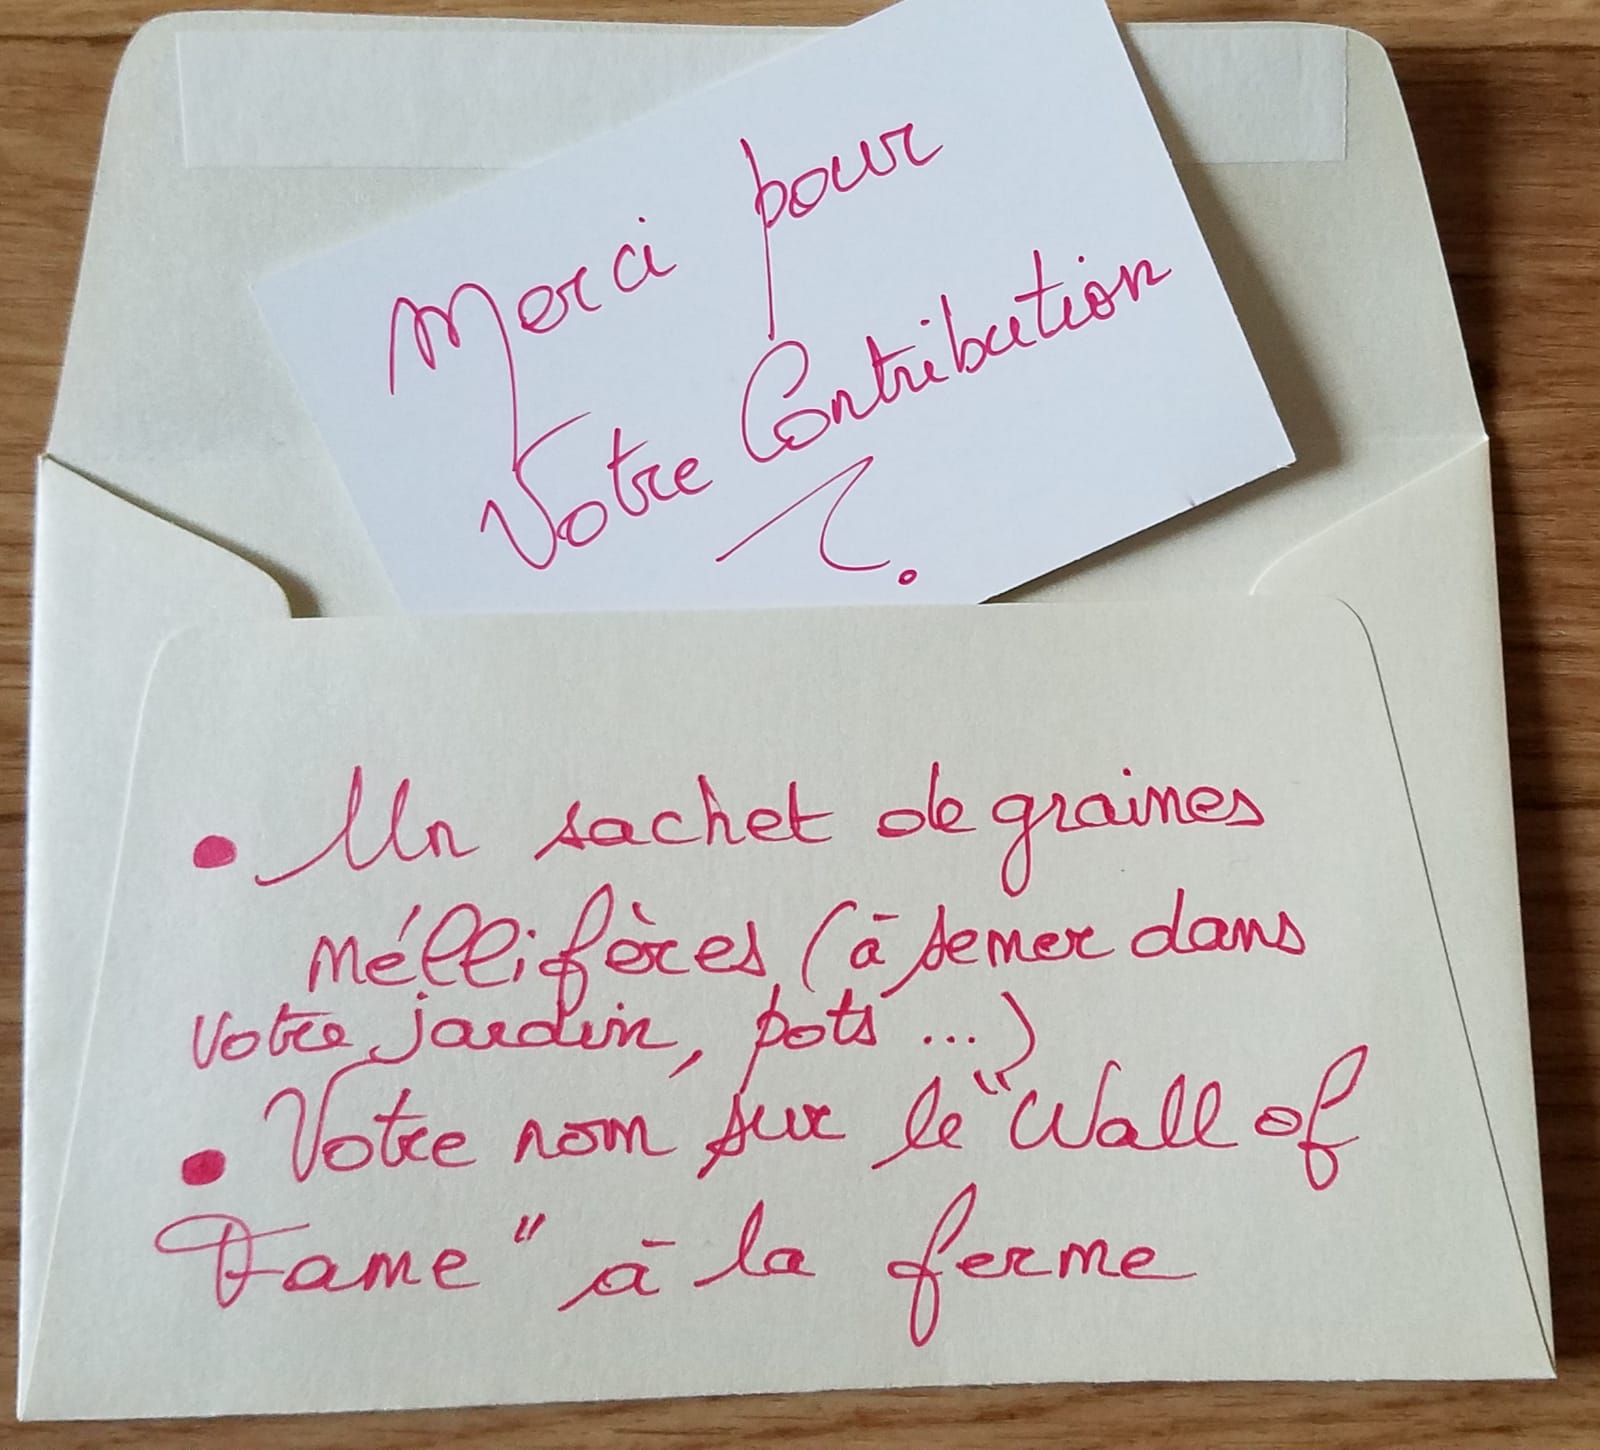 Merci pour
Votre Contribution
• Un sachet de graines
méllifères (à semer dans
votre jardin, pots ...)
• Votre nom sur le "Wall of
Fame" à la ferme